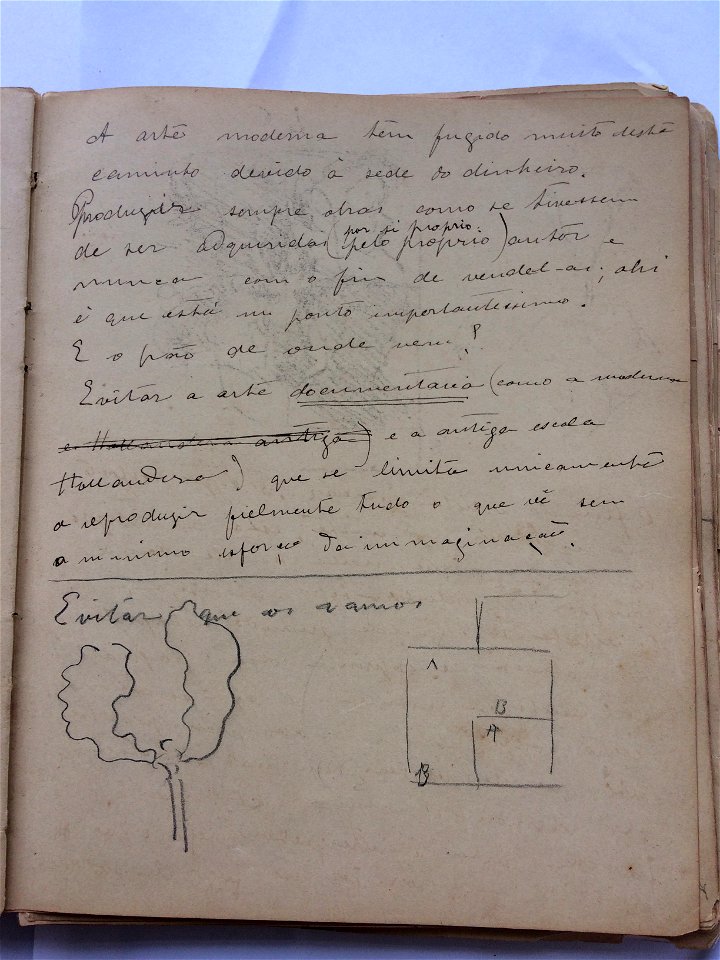 A arte moderna tem fugido muito deste
caminho devido á sede do dinheiro.
Produzir sempre obras como se tivessem
de ser adquiridas (por si proprio.
pelo proprio) autor e
nunca com o fim de vendel-as; ahi
é que está um ponto importantissimo.
E o pão de onde vem?
Evitar a arte documentaria (como a moderna
e Hollandeza antiga) e a antiga escola
Hollandeza) que se limita unicamente
a reproduzir fielmente tudo o que vê sem
o minimo esforço da immaginação.
Evitar que os ramos
A
B
A
B